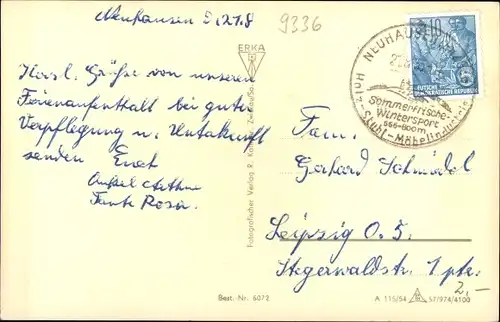 Neuhausen d. 21.8
9336
ERKA
Herzl. Grüße von unseren
Ferienaufenthalt bei guter
Verpflegung u. Unterkunft
senden Euch
Onkel Arthur
Tante Rosa
Fotografischer Verlag R.
Best.-Nr. 6072
NEUHAUSEN
Holz-, Stuhl-, Möbelindustrie
Sommerfrische-
Wintersport
565-800 m
10
DEUTSCHE
DEMOKRATISCHE REPUBLIK
Fam.
Gerhard Schmidel
Leipzig O. 5.
Stegerwaldstr. 1 ptr.
2,-
A 115/54 57/974/4100